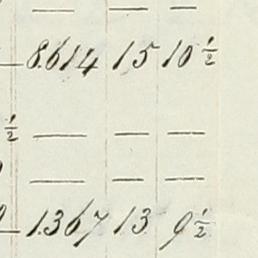 — — —
8614 15 10 ½
½ — — —
— — —
1367 13 9 ½